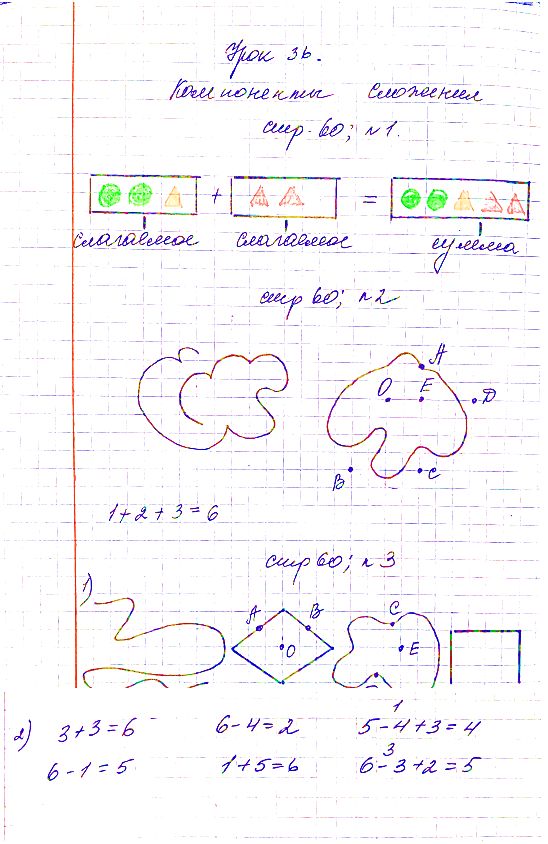 Урок 36.
Компоненты сложения
стр 60; №1.
+ =
слагаемое слагаемое сумма
стр 60; №2
A
O E D
B C
1+2+3=6
стр 60; №3
1)
A B C
O E
1
2) 3+3=6 6-4=2 5-4+3=4
3
6-1=5 1+5=6 6-3+2=5